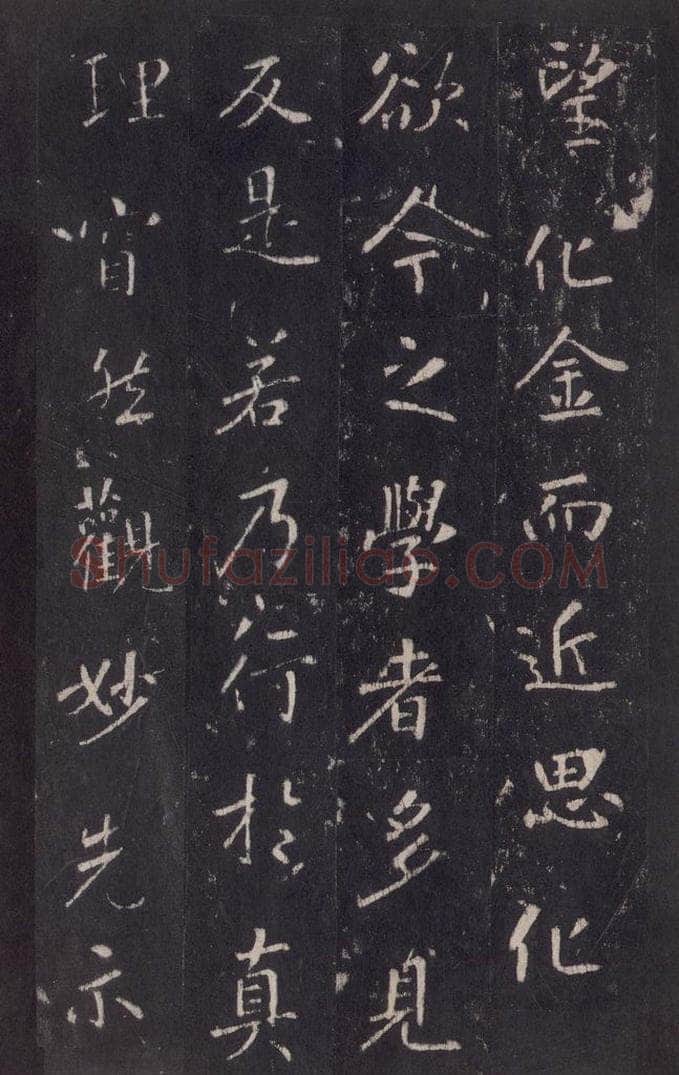 望化金而近思化
欲今之學者多見
反是若乃行於真
理窅然觀妙先示
Shufaziliao.com